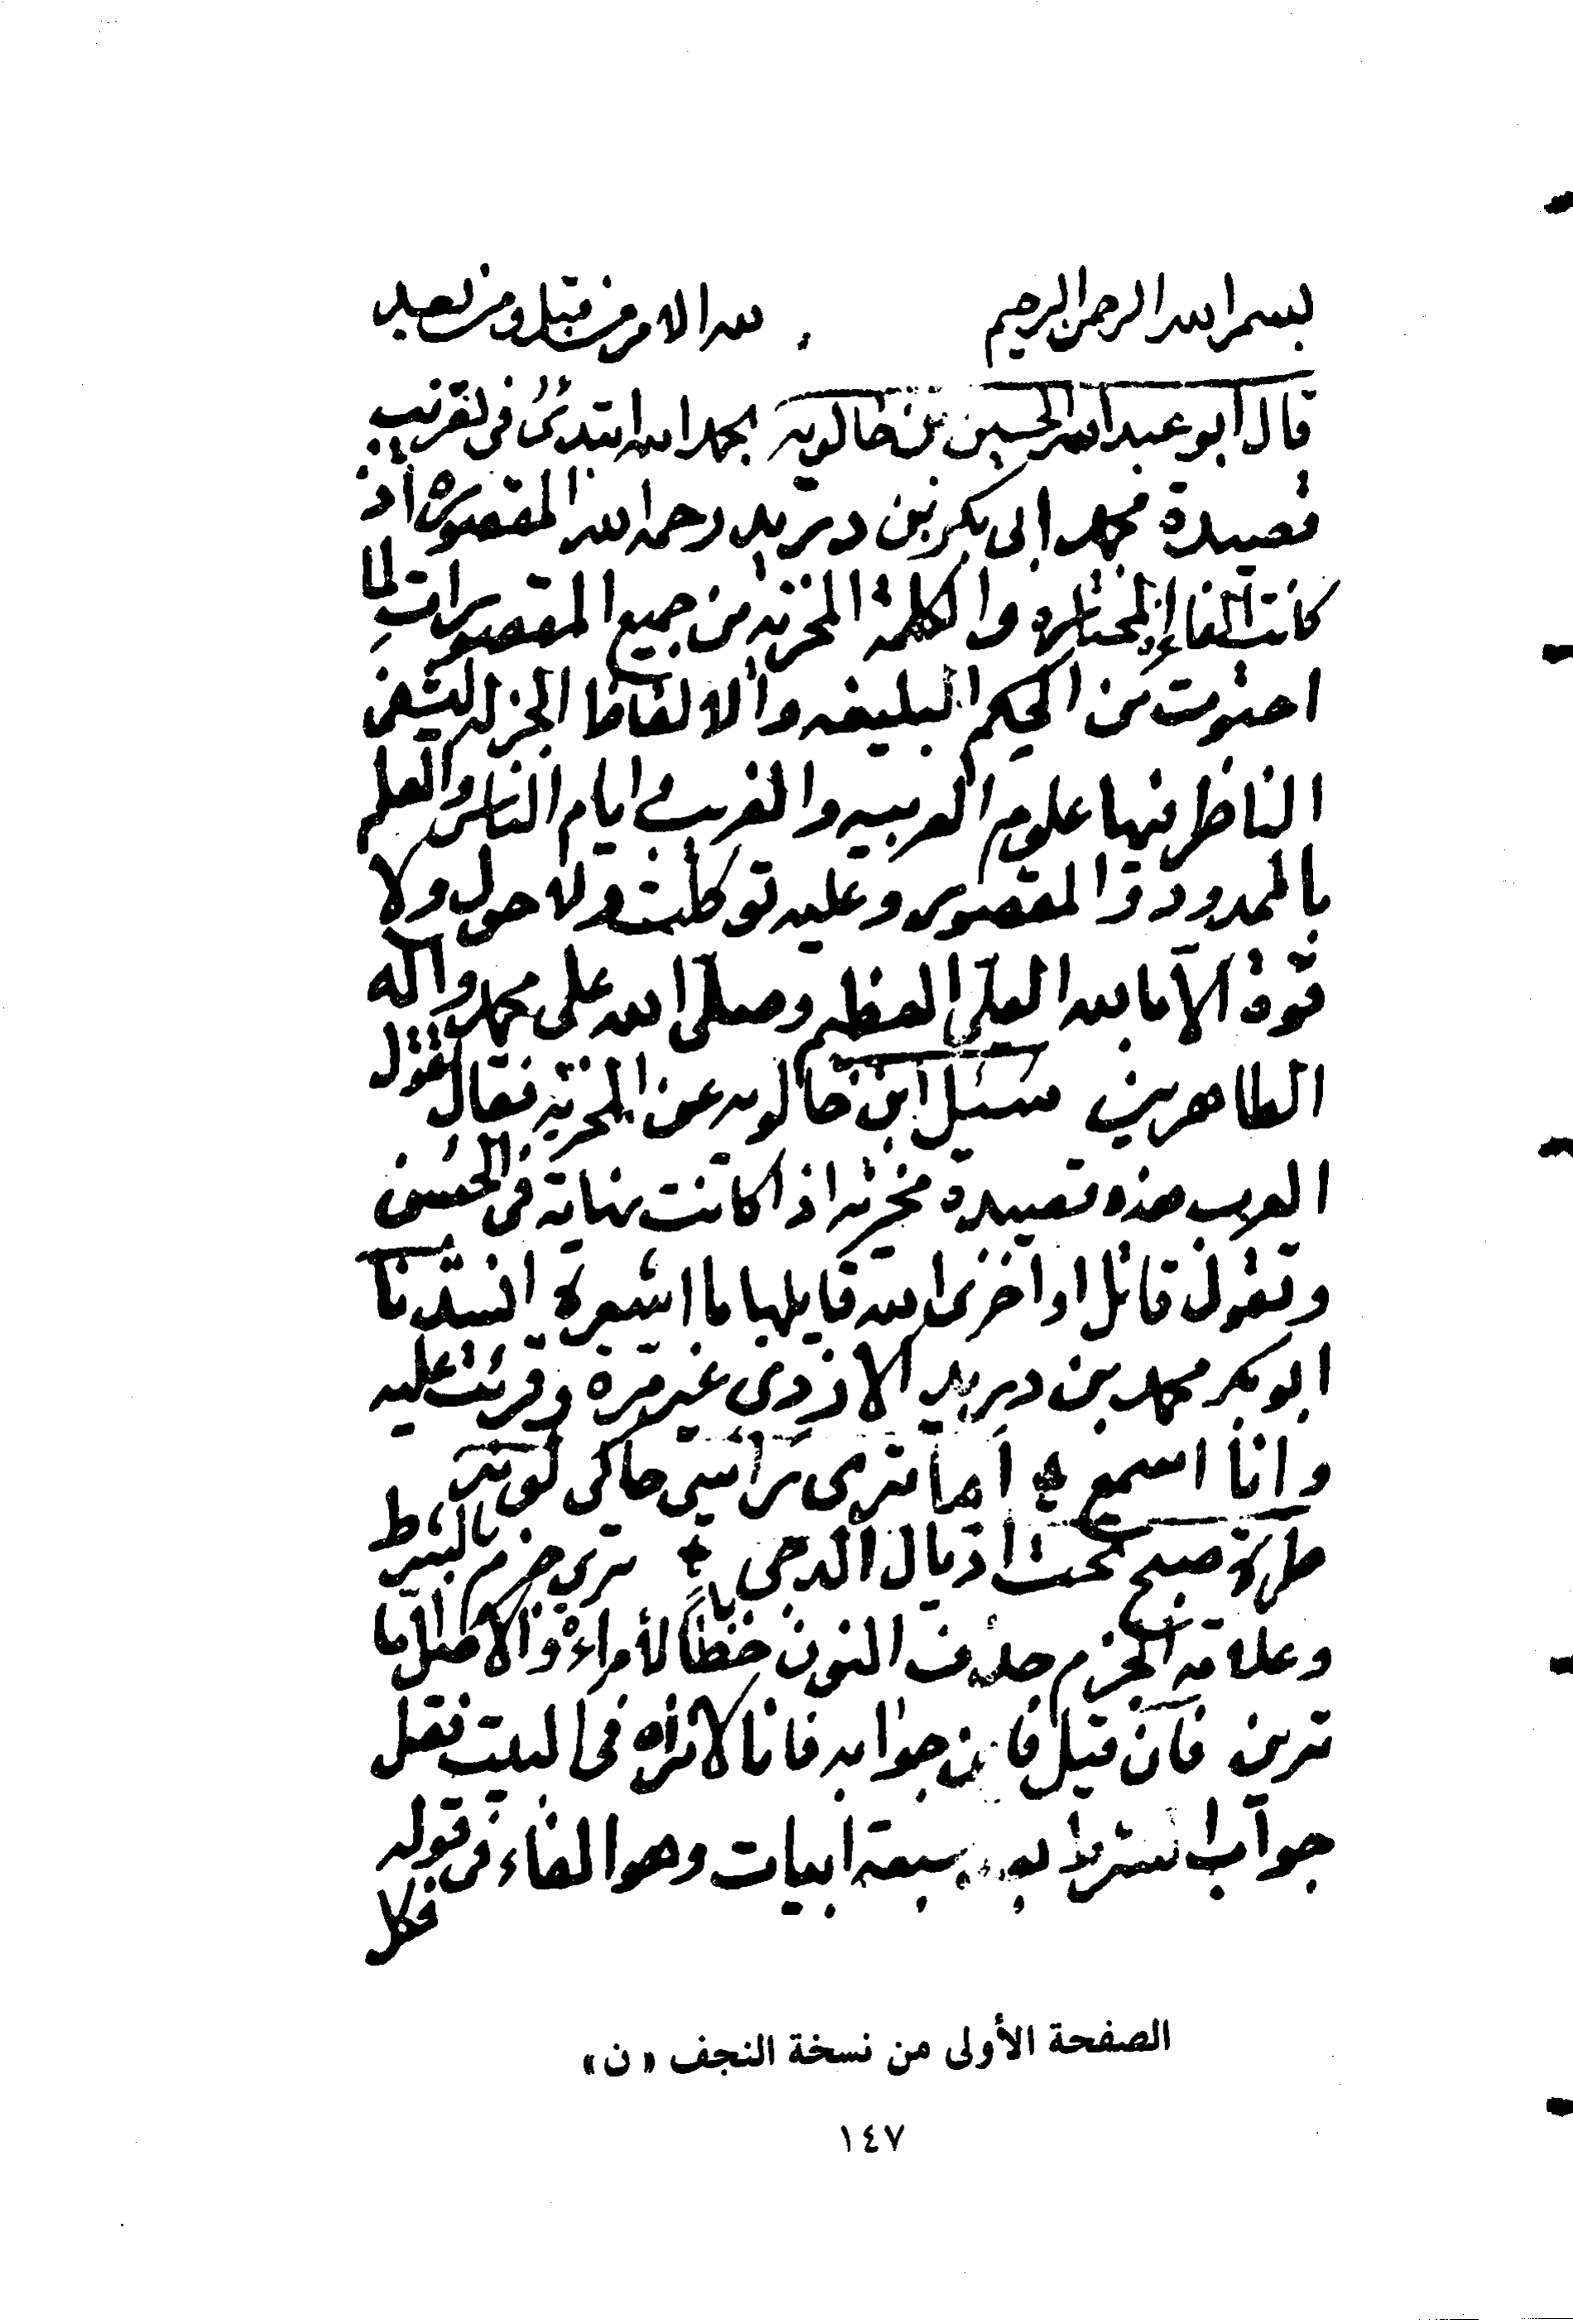 بسم الله الرحمن الرحيم لله الامر من قبل ومن بعد
قال ابو عبد الله الحسين بن خالويه بحمد الله ابتدئ في تقريب
قصيدة محمد ابى بكر بن دريد رحمه الله المقصورة اذ
كانت المختارة والكلمة المخزية من جميع المقصورات لما
احتوت من الحكم البليغه والالفاظ الجزله
الناظر فيها علوم العربيه والغريب ايام الناس والعلم
بالممدود والمقصور وعليه توكلت وله حول ولا
قوة الا بالله العلي العظيم وصلى الله على محمد واله
الطاهرين سئل ابن خالويه عن المخزيه فقال تقول
العرب هذه قصيدة مخزيه اذا كانت نهاية في الحسن
وتقول قائل او اخزى الله قايلها ما اشعره انشدنا
ابو بكر محمد بن دريد الازدى غير مرة وقرئت عليه
وانا اسمع اما ترى راسي حاكى لونه
طرة صبح تحت اذيال الدجى ترى جزم بالشرط
وعلامة الجزم حذف النون خطابا لأمراءة والاصل اما
ترين فان قيل فاين جوابه فانا لا نراه في البيت فقل
جواب الشرط بعد سبعة ابيات وهو الفاء في قوله
فكل
الصفحة الأولى من نسخة النجف «ن»
١٤٧